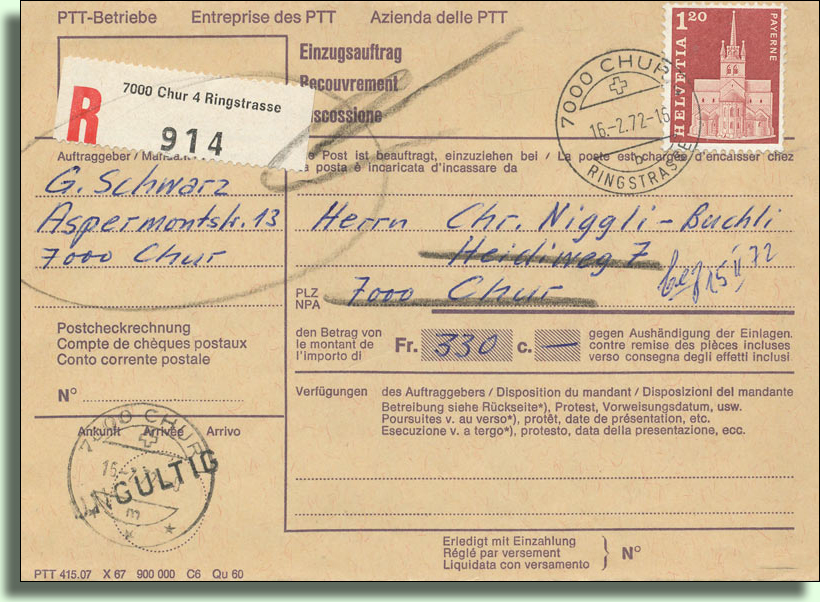 PTT-Betriebe Entreprise des PTT Azienda delle PTT
Einzugsauftrag
Recouvrement
Riscossione
R
7000 Chur 4 Ringstrasse
914
7000 CHUR
16.-2.72-16
RINGSTRASSE
HELVETIA 1 20 PAYERNE
Auftraggeber /
Post ist beauftragt, einzuziehen bei / La poste est chargée d'encaisser chez
posta è incaricata d'incassare da
G. Schwarz
Aspermontstr. 13
7000 Chur
Herrn Chr. Niggli-Buchli
Heidiweg 7
PLZ
NPA
7000 Chur
72
Postcheckrechnung
Compte de chèques postaux
Conto corrente postale
N°
den Betrag von
le montant de
l'importo di
Fr. 330 c. —
gegen Aushändigung der Einlagen.
contre remise des pièces incluses
verso consegna degli effetti inclusi
Verfügungen des Auftraggebers / Disposition du mandant / Disposizioni del mandante
Betreibung siehe Rückseite*), Protest, Vorweisungsdatum, usw.
Poursuites v. au verso*), protêt, date de présentation, etc.
Esecuzione v. a tergo*), protesto, data della presentazione, ecc.
Ankunft Arrivée Arrivo
7000 CHUR
16.
UNGÜLTIG
3
Erledigt mit Einzahlung
Réglé par versement
Liquidata con versamento
N°
PTT 415.07 X 67 900 000 C6 Qu 60